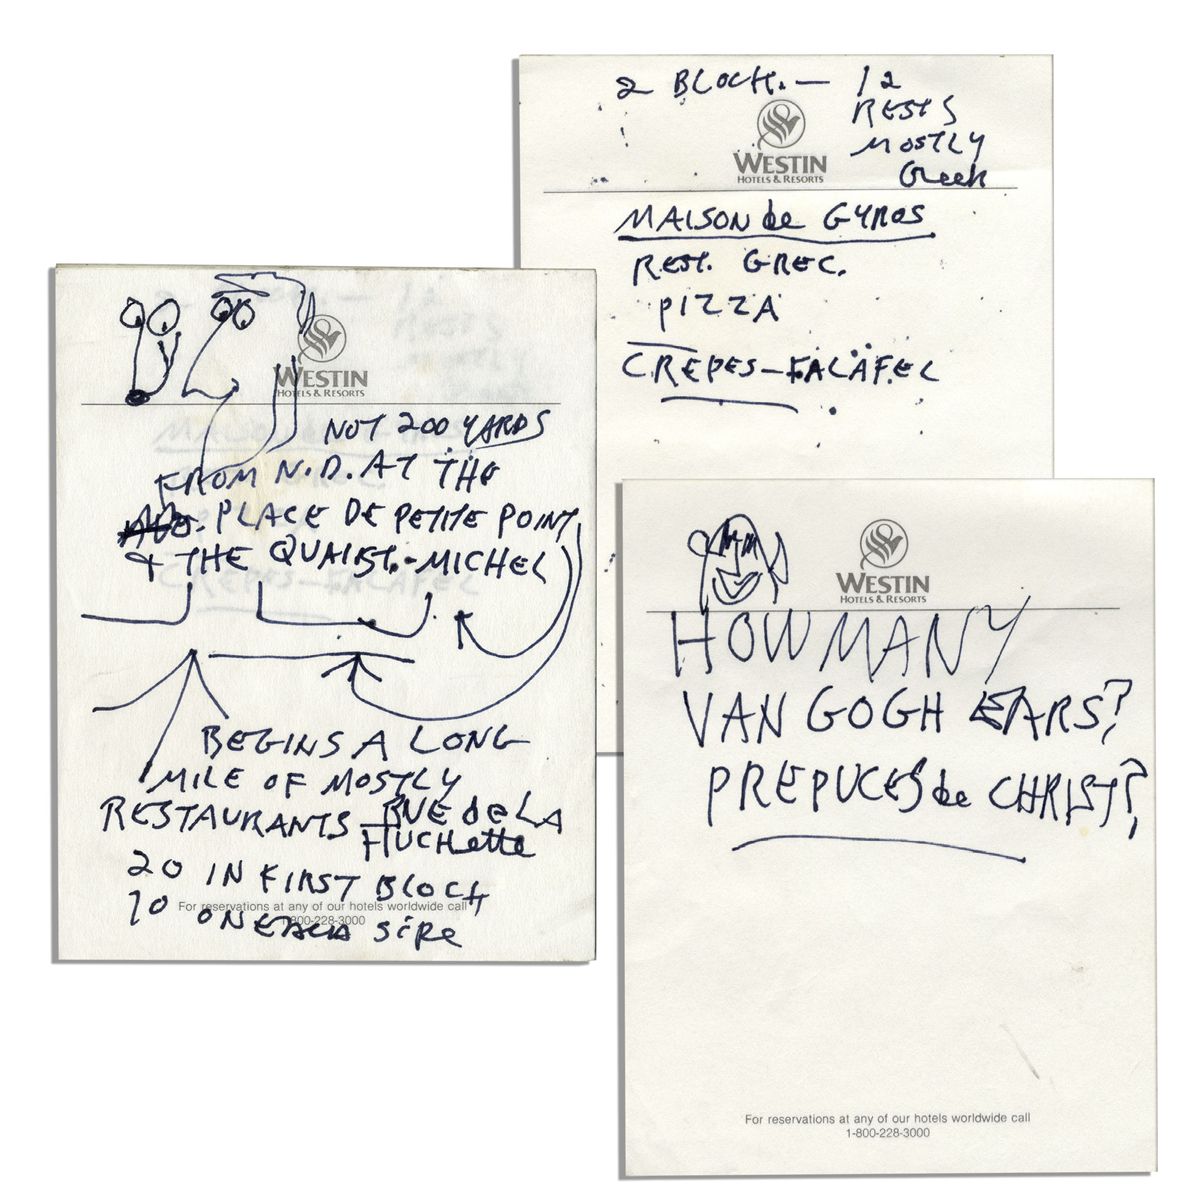 2 BLOCK. — 12
RESTS
MOSTLY
Greek
WESTIN
HOTELS & RESORTS
MAISON de GYROS
REST. GREC.
PIZZA
CREPES — FALAFEL
WESTIN
HOTELS & RESORTS
NOT 200 YARDS
FROM N.D. AT THE
PLACE DE PETITE POINT
& THE QUAI ST. - MICHEL
BEGINS A LONG
MILE OF MOSTLY
RESTAURANTS — RUE de LA
HUCHette
20 IN FIRST BLOCK
10 ON EACH SIDE
For reservations at any of our hotels worldwide call
1-800-228-3000
WESTIN
HOTELS & RESORTS
HOW MANY
VAN GOGH EARS?
PREPUCES de CHRIST?
For reservations at any of our hotels worldwide call
1-800-228-3000